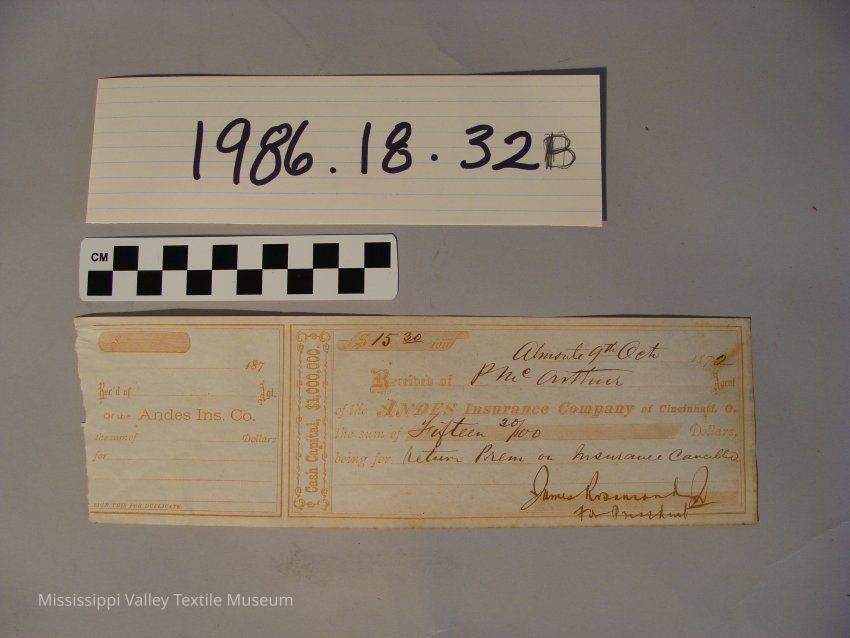 1986.18.32B
CM
187
Rec'd of Agt.
Of the Andes Ins. Co.
the sum of Dollars
for
SIGN THIS FOR DUPLICATE.
Cash Capital, $1,000,000.
$ 15 30/100
Almonte 9th Octr 1872
Received of P McArthur Agent
of the ANDES Insurance Company of Cincinnati, O.
the sum of Fifteen 30/100 Dollars,
being for return Prem on Insurance Cancelled
James Rosamond Jr
for President
Mississippi Valley Textile Museum